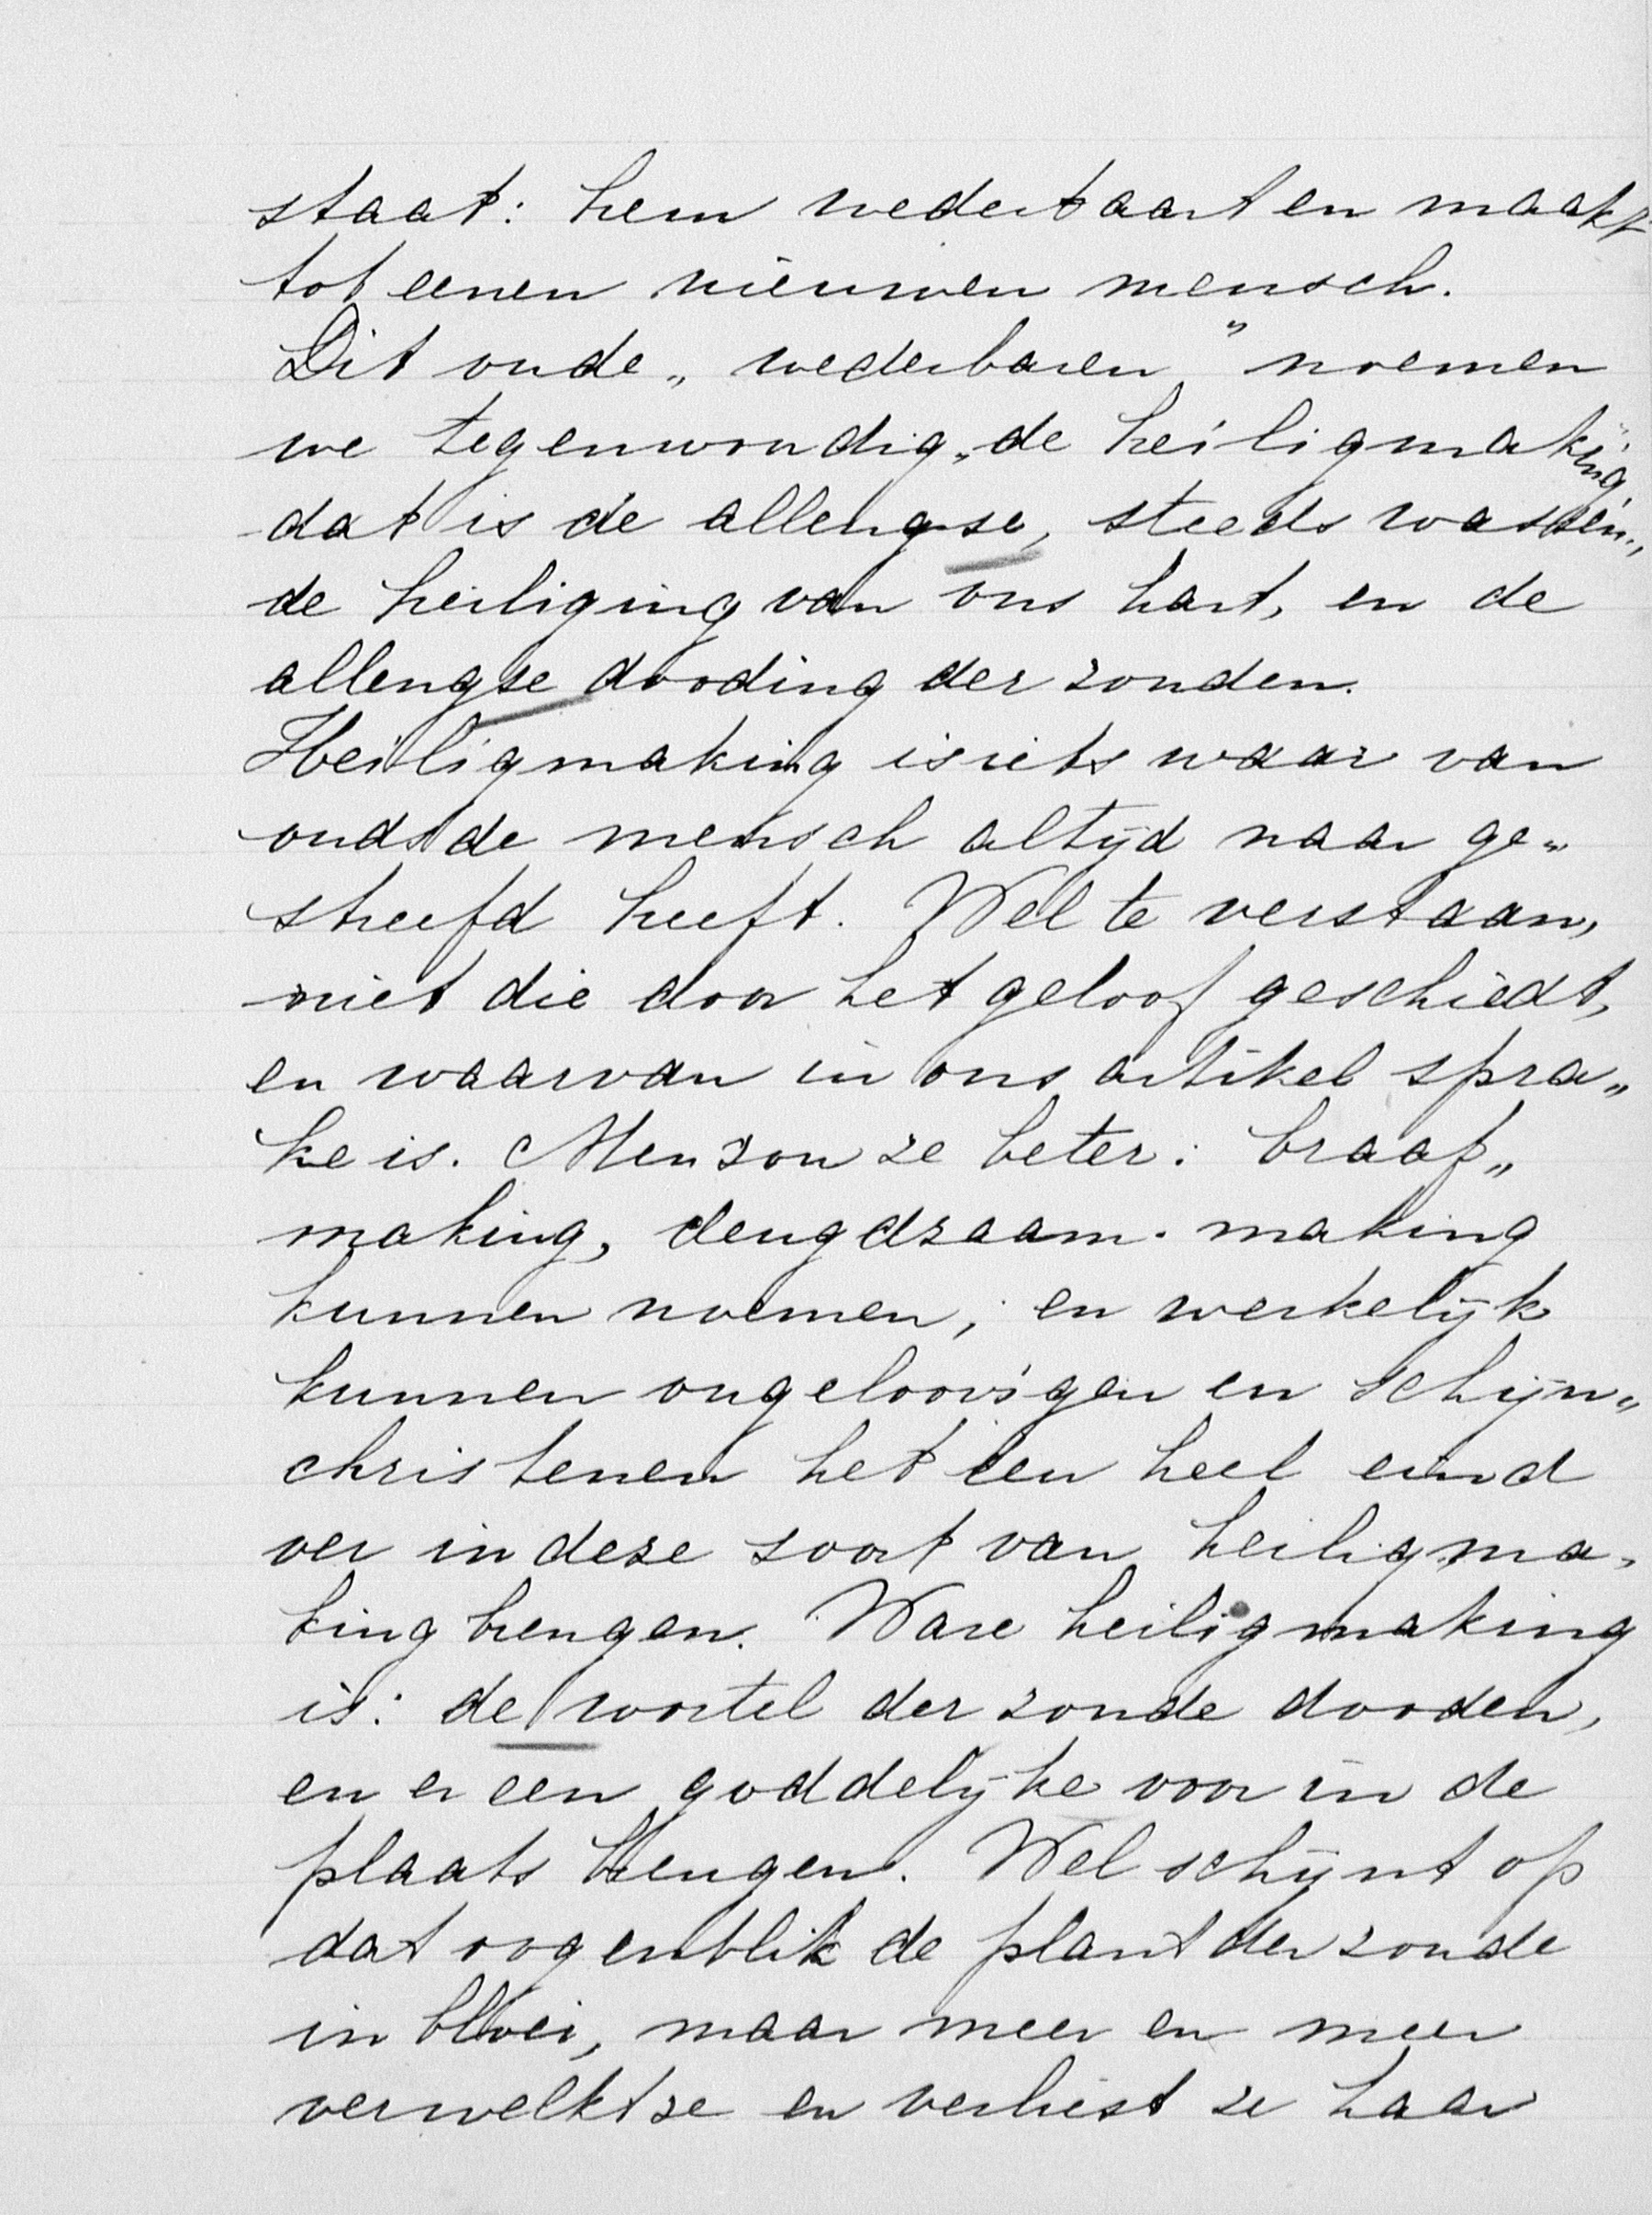 staat: hem wederbaart en maakt
tot eenen nieuwen mensch.
Dit oude „wederbaren" noemen
we tegenwoordig „de heiligmaking",
dat is de allengse, steeds wassen„
de heiliging van ons hart, en de
allengse dooding der zonden.
Heiligmaking is iets waar van
ouds de mensch altijd naar ge„
streefd heeft. Wel te verstaan,
niet die door het geloof geschiedt,
en waarvan in ons artikel spra„
ke is. Men zou ze beter: braaf„
making, deugdzaam-making
kunnen noemen; en werkelijk
kunnen ongeloovigen en schijn„
christenen het een heel eind
ver in deze soort van heiligma„
king brengen. Ware heiligmaking
is: de wortel der zonde dooden,
en er een goddelijke voor in de
plaats brengen. Wel schijnt op
dat oogenblik de plant der zonde
in bloei, maar meer en meer
verwelkt ze en verliest ze haar